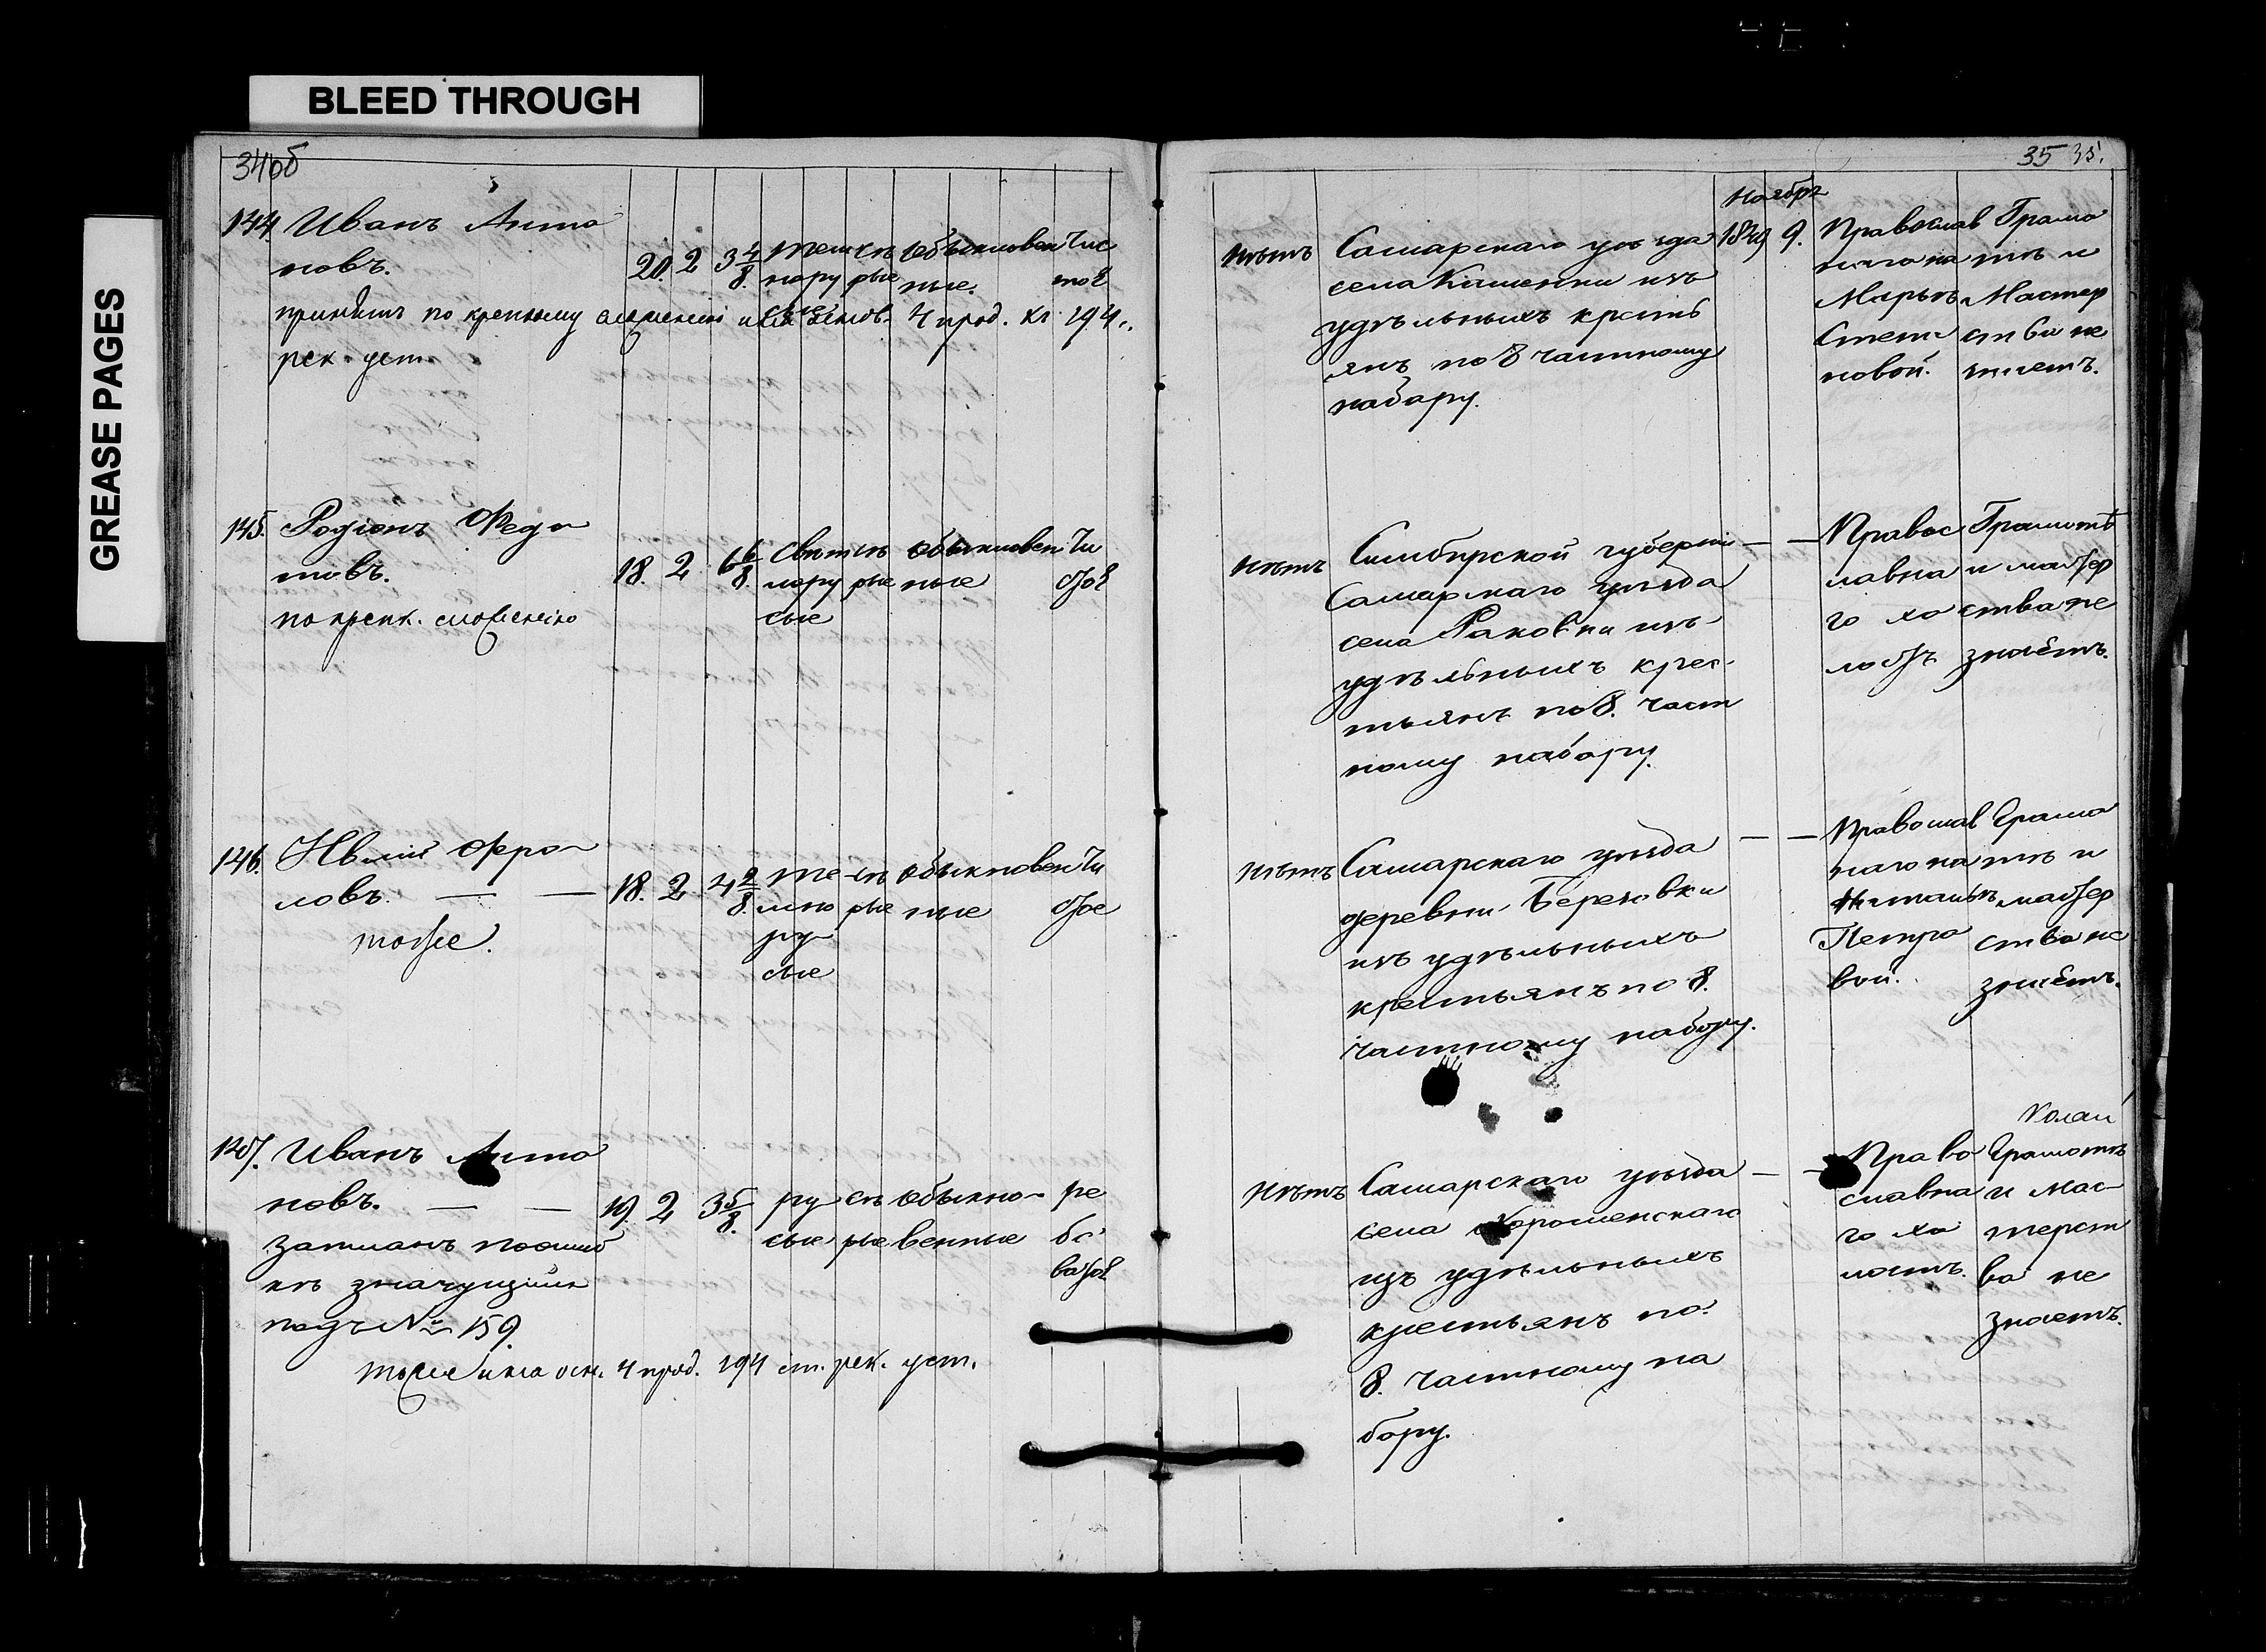 BLEED THROUGH
GREASE PAGES
34об
144. Иванъ Анто
новъ.
20. 2 3 4/8.
темн
нору
сые
сѣ
рые
обыкновен
ные.
Чис
тое
принятъ по крепкому сложенію 4 прод. 194
рек. уст.
145. Родіонъ Федо
товъ.
18. 2 6 6/8.
Светл
лору
сые
сѣ
рые
обыкновен
ные
Чи
стое
по крепк. сложенію
146. Фро
ловъ. — —
18. 2 4 2/8.
те-
мно
ру
сые
сѣ
рые
обыкновен
ные
Чи
стое
тоже.
147. Иванъ Анто
новъ. — —
19. 2 3 5/8.
ру
сые
сѣ
рые
обыкно-
венные
ре
бо
ватое
значущимся
подъ № 159.
тоже 4 прод. 194 ст. рек. уст.
35 35.
Ноября
1849 9.
Нѣтъ
Самарскаго уѣзда
села Каменки изъ
удѣльныхъ кресть
янъ по 8 частному
набору.
Православ
наго на
Марьѣ
Степа
новой.
Грамо
тѣ и
Мастер
ства не
знаетъ.
Нѣтъ
Симбирской губерніи — —
Самарскаго уѣзда
села Раковки изъ
удѣльныхъ крес-
тьянъ по 8. част
ному набору.
Правос
лавна
го хо
лостъ
Грамотѣ
и мастер
ства не
знаетъ.
Нѣтъ
Самарскаго уѣзда — —
деревни Березовки
изъ удѣльныхъ
крестьянъ по 8.
частному набору.
Православ
наго на
Натальѣ
Петро
вой.
Грамо
тѣ и
мастер
ства не
знаетъ.
Нѣтъ
Самарскаго уѣзда — —
села Хорошенскаго
изъ удѣльныхъ
крестьянъ по
8. частному на
бору.
Право
славна
го хо
лостъ.
Грамотѣ
и Мас-
терст
ва не
знаетъ.